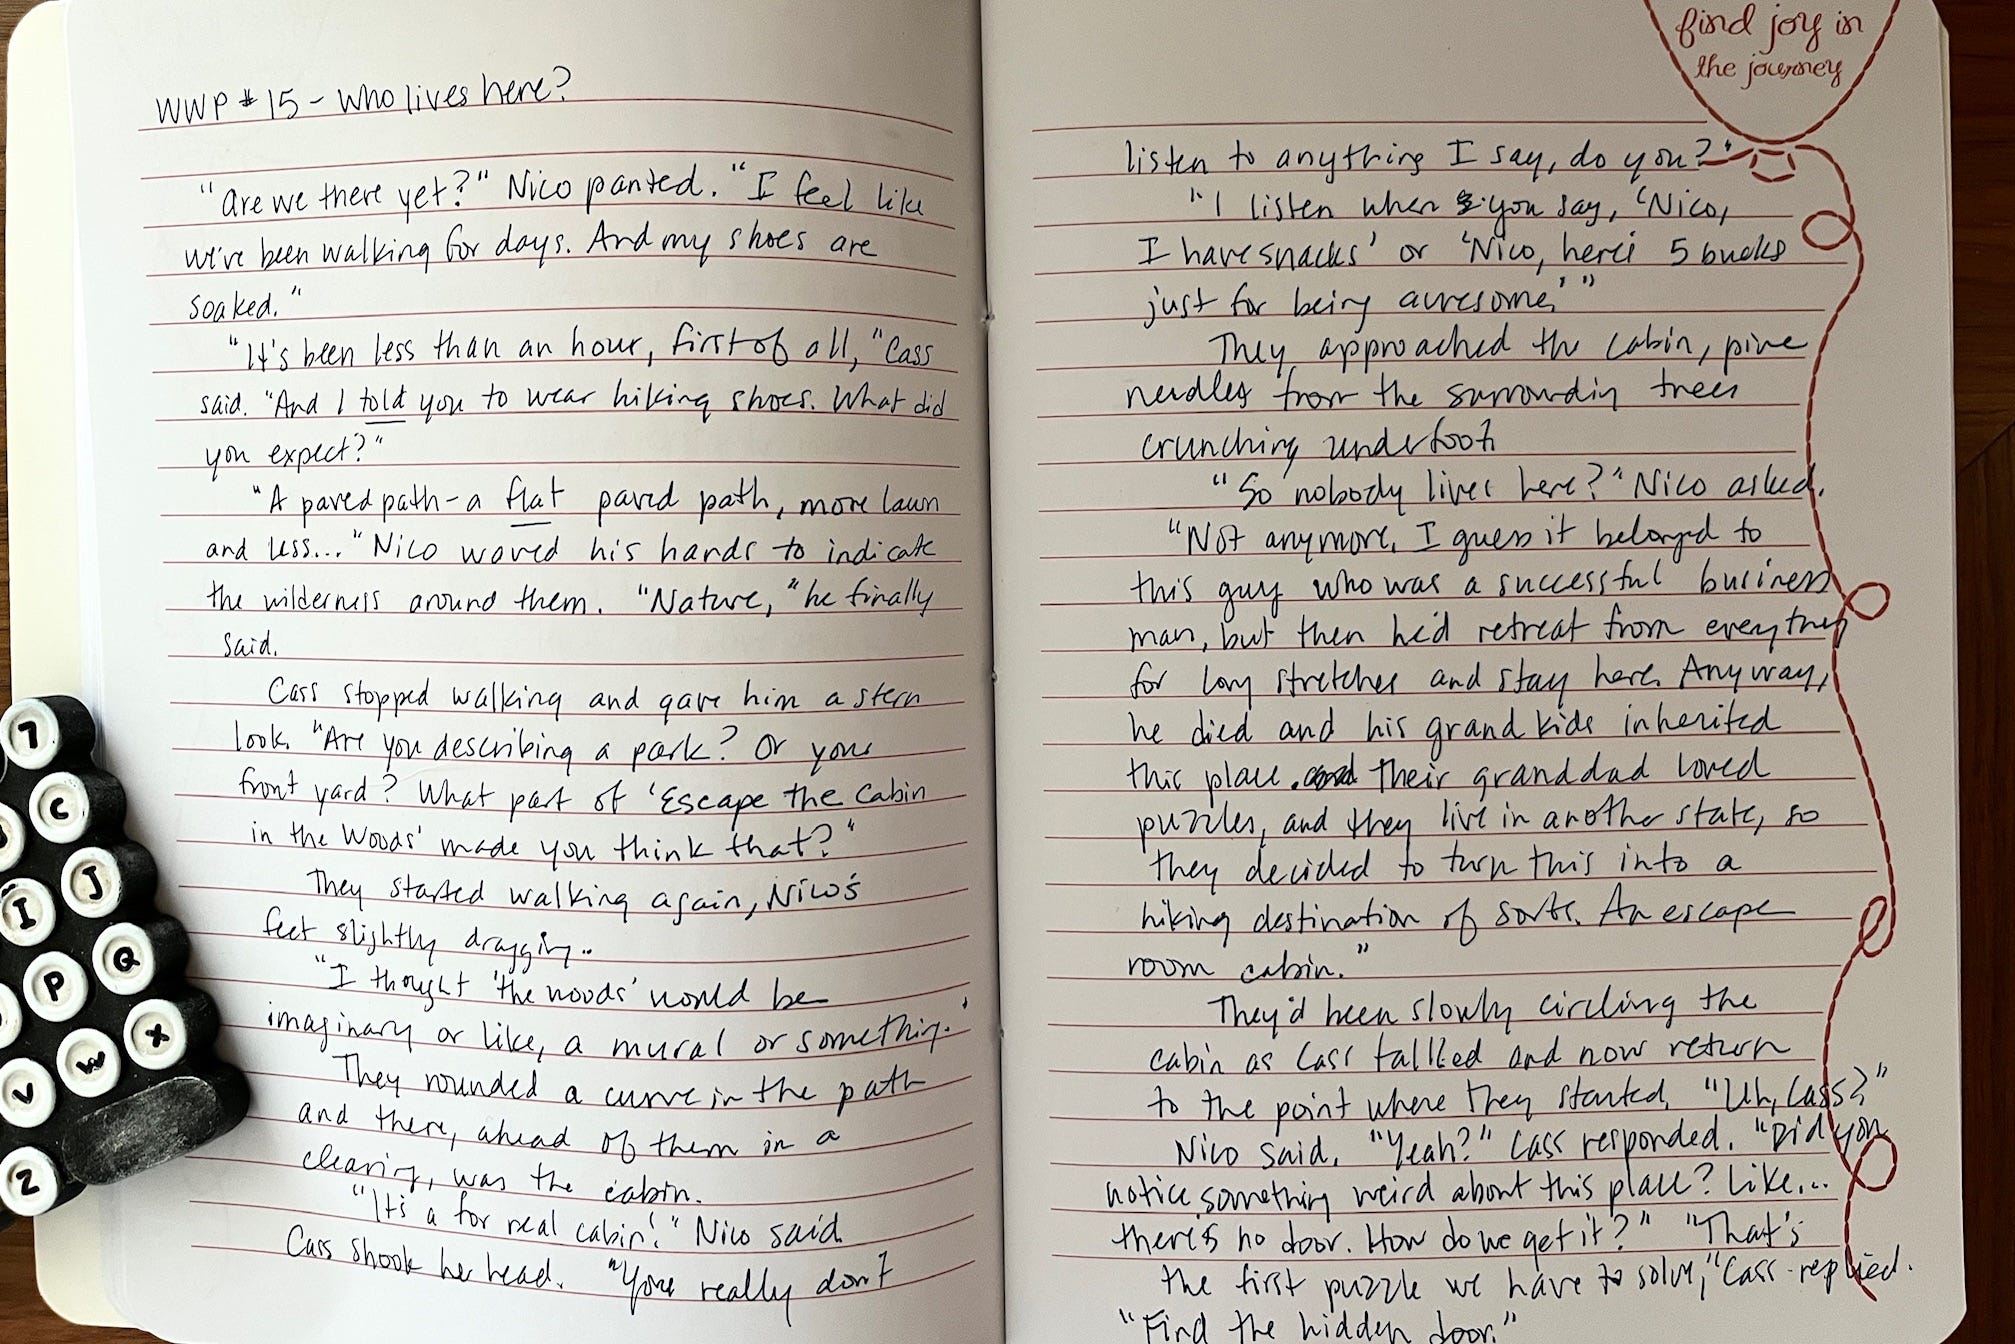 WWP #15 - Who lives here?
"Are we there yet?" Nico panted. "I feel like
we've been walking for days. And my shoes are
soaked."
"It's been less than an hour, first of all," Cass
said. "And I told you to wear hiking shoes. What did
you expect?"
"A paved path - a flat paved path, more lawn
and less..." Nico waved his hands to indicate
the wilderness around them. "Nature," he finally
said.
Cass stopped walking and gave him a stern
look. "Are you describing a park? Or your
front yard? What part of 'Escape the Cabin
in the Woods' made you think that?"
They started walking again, Nico's
feet slightly dragging..
"I thought 'the woods' would be
imaginary or like, a mural or something.'
They rounded a curve in the path
and there, ahead of them in a
clearing, was the cabin.
"It's a for real cabin!" Nico said.
Cass shook her head. "You really don't
find joy in
the journey
listen to anything I say, do you?"
"I listen when you say, 'Nico,
I have snacks' or 'Nico, here's 5 bucks
just for being awesome.'"
They approached the cabin, pine
needles from the surrounding trees
crunching underfoot
"So nobody lives here?" Nico asked.
"Not anymore. I guess it belonged to
this guy who was a successful business
man, but then he'd retreat from everything
for long stretches and stay here. Anyway,
he died and his grand kids inherited
this place. Their granddad loved
puzzles, and they live in another state, so
they decided to turn this into a
hiking destination of sorts. An escape
room cabin."
They'd been slowly circling the
cabin as Cass talked and now return
to the point where they started. "Uh, Cass?"
Nico said. "Yeah?" Cass responded. "Did you
notice something weird about this place? Like...
there's no door. How do we get it?" "That's
the first puzzle we have to solve," Cass replied.
"Find the hidden door."
7
C
J
I
Q
P
X
W
V
Z